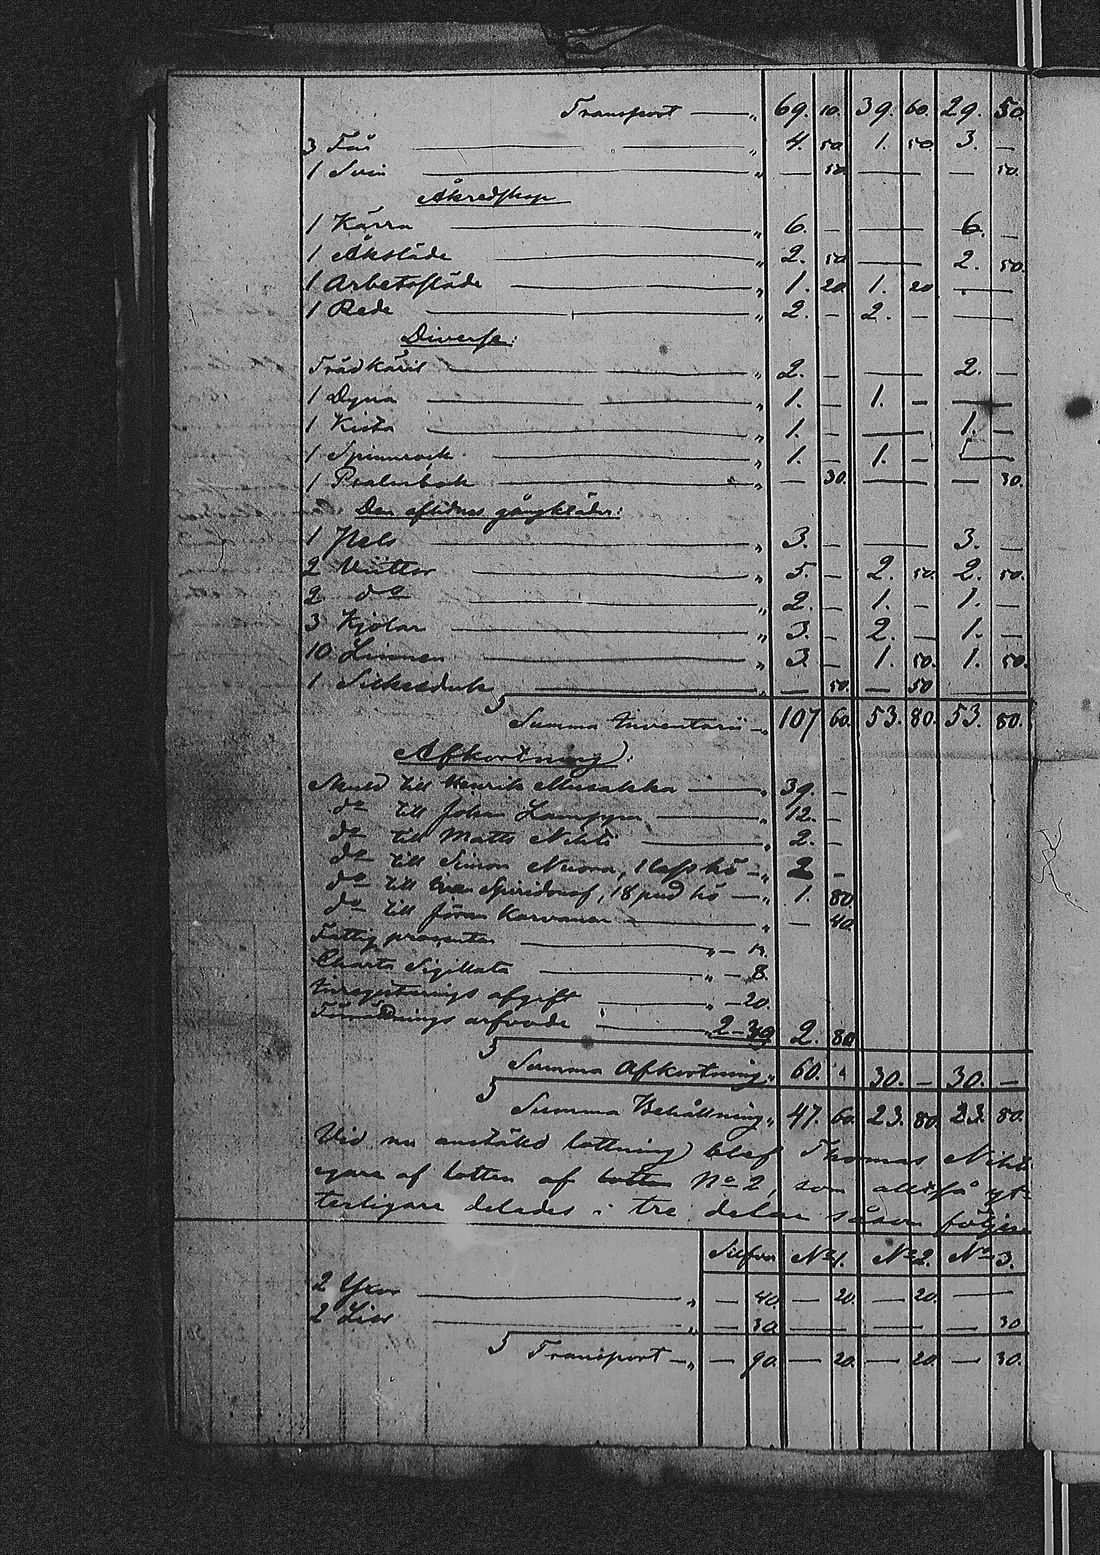 Transport — „ 69. 10. 39. 60. 29. 50.
3 Får — „ 4. 50 1. 50. 3. —
1 Svin — „ — 50. — — 50.
Åkredskap
1 Kärra — „ 6. — — 6. —
1 Åksläde — „ 2. 50 — 2. 50.
1 Arbetssläde — „ 1. 20. 1. 20 —
1 Rede — „ 2. — 2. — —
Diverse:
Trädkäril — „ 2. — — 2. —
1 Dyna — „ 1. — 1. — —
1 Kista — „ 1. — — 1. —
1 Spinnrock — „ 1. — 1. — —
1 Psalmbok — „ — 30. — — 30.
Den aflidnes gångkläder:
1 Pels — „ 3. — — 3. —
2 — „ 5. — 2. 50. 2. 50.
2 do — „ 2. — 1. — 1. —
3 Kjolar — „ 3. — 2. — 1. —
10 Linnen — „ 3. — 1. 50. 1. 50.
1 Silkesduk — „ — 50. — 50 —
Summa Inventarii — „ 107 60. 53. 80. 53. 80.
Afkortning:
Skuld till Henrik Musakka — „ 39. —
do till Johan — „ 12. —
do till Matts — „ 2. —
do till Simon , 1 lass hö — „ 2 —
do till Spiridonof, 18 pud hö — „ 1. 80.
do till Jöran Karvanen — „ — 40
Fattig procenter — „ —
Charta Sigillata — „ — 8.
afgift — „ — 20.
arfvode — „ 2 — 2. 80
Summa Afkortning „ 60. „ 30. — 30. —
Summa Behållning „ 47. 60. 23. 80. 23. 80.
Vid nu anstäld lottning blef Thomas
egare af lotten af lotten No 2, som alltså yt-
terligare delades i tre delar såsom följer
No 1. No 2. No 3.
2 Yxor — „ — 40. — 20. — 20. —
2 Liar — „ — 30 — — — 30
Transport — „ — 90. — 20. — 20. — 30.